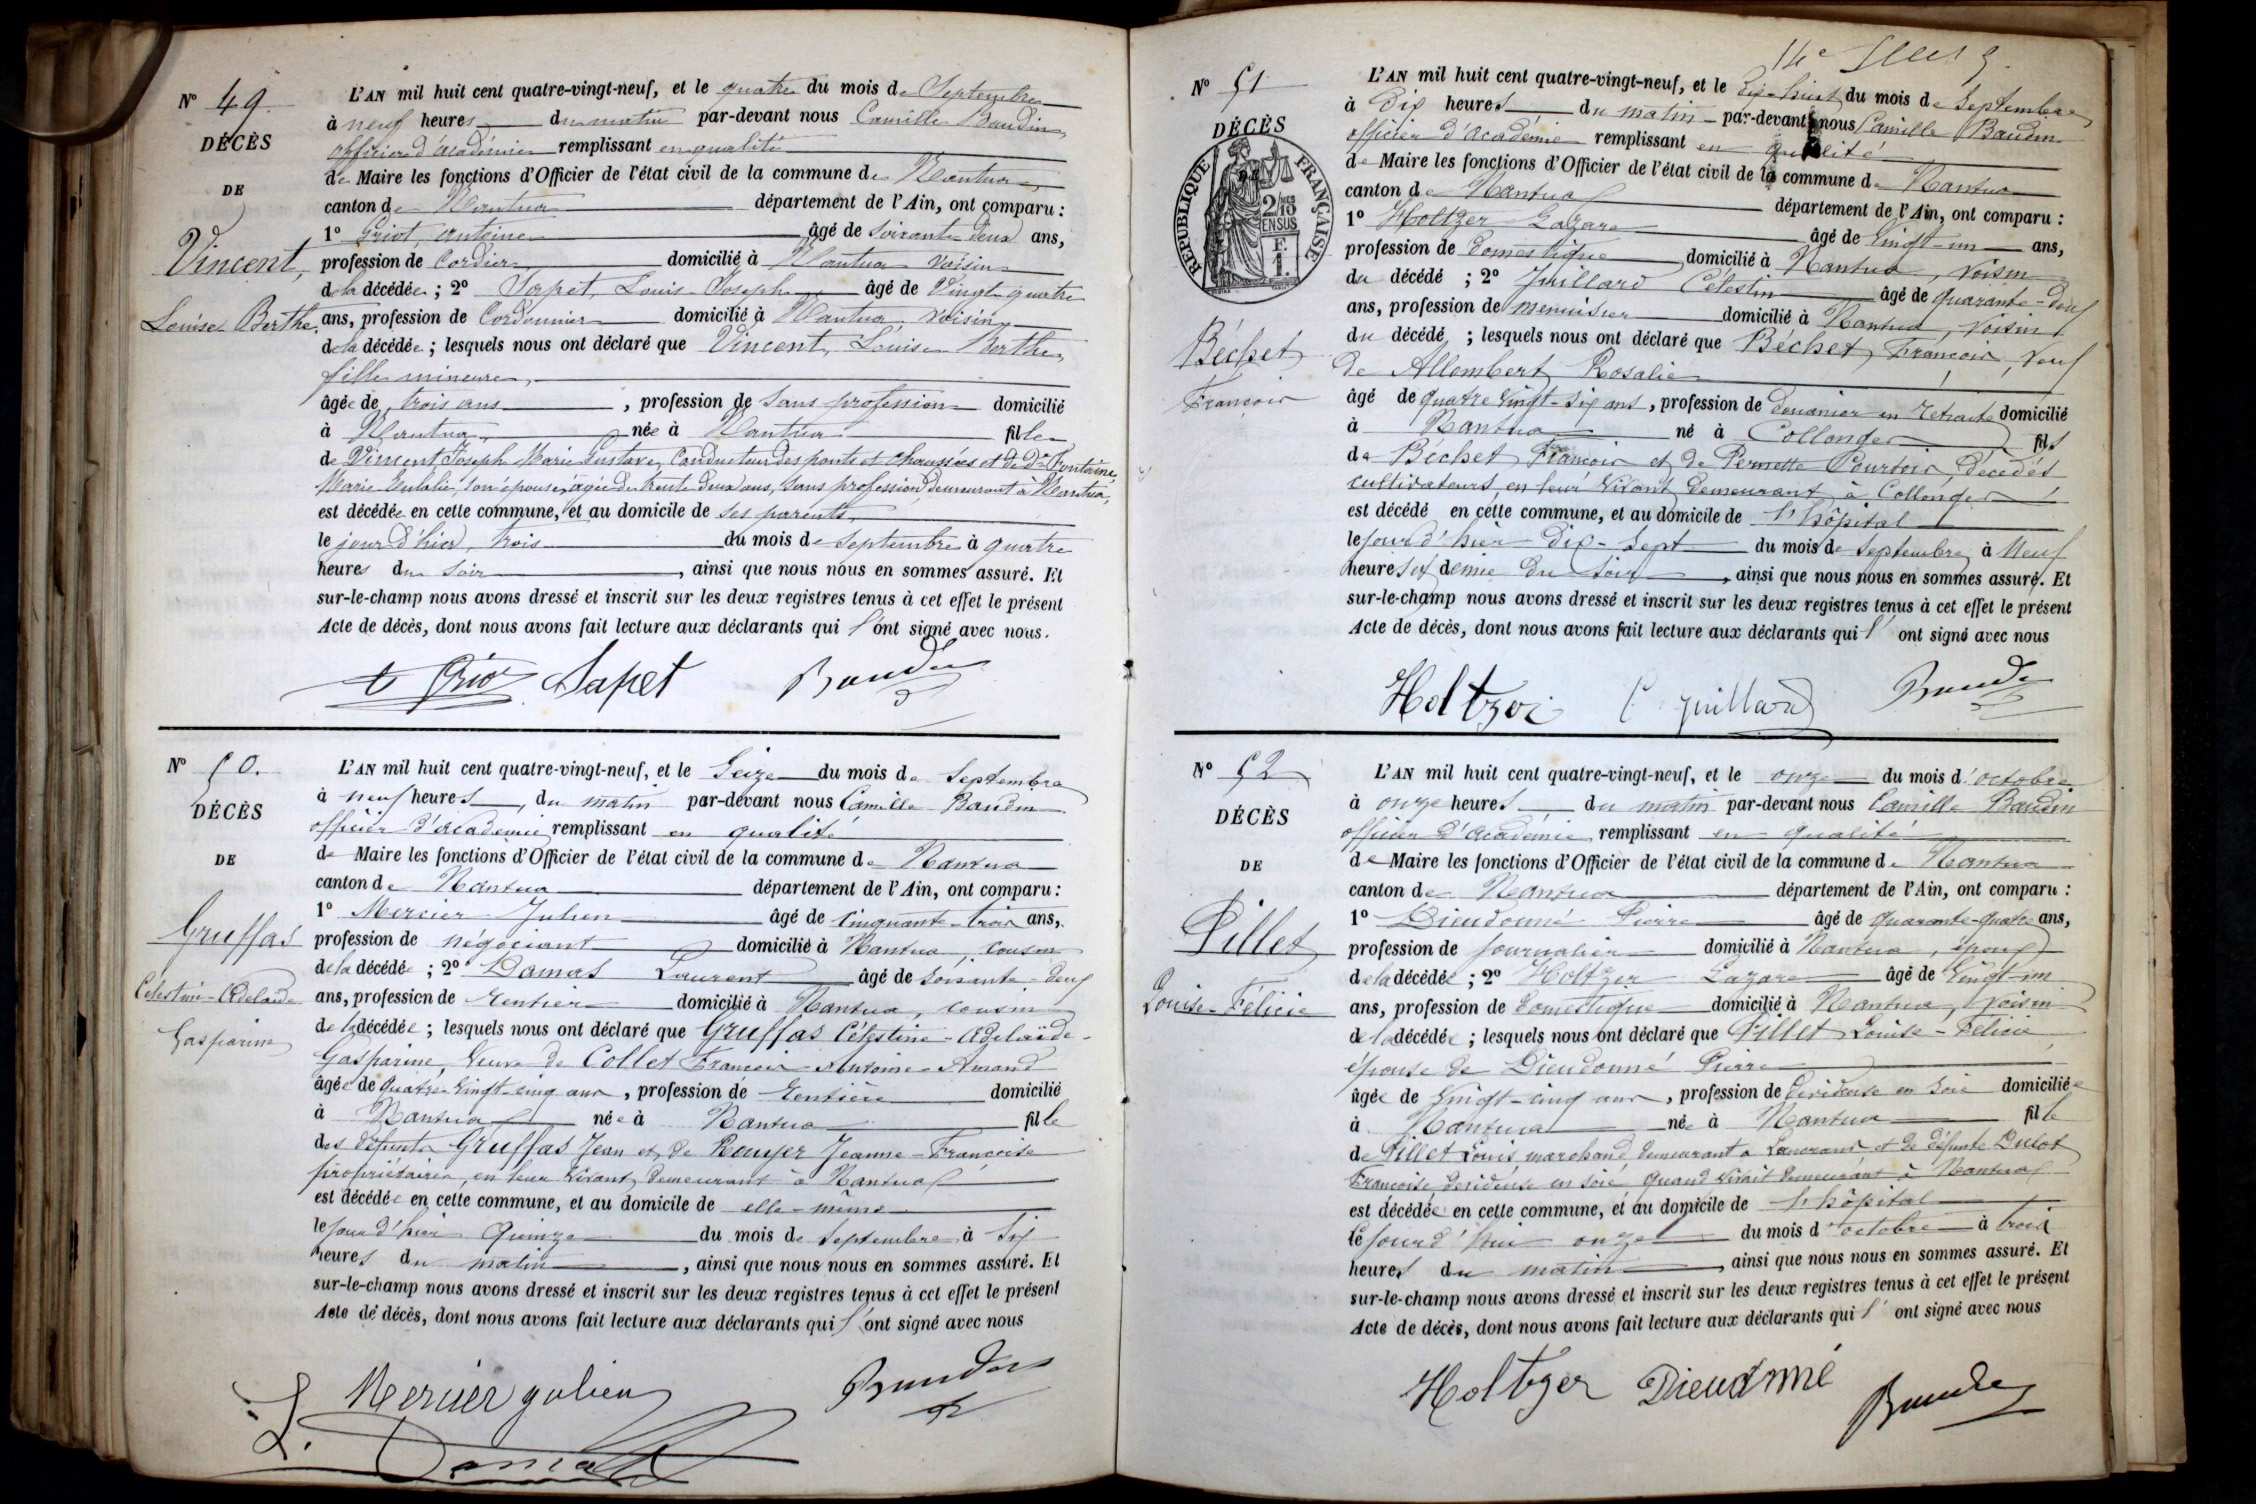 N° 49
DÉCÈS
DE
Vincent,
Louise Berthe.
L'AN mil huit cent quatre-vingt-neuf, et le quatre du mois de Septembre
à neuf heures du matin par-devant nous Camille Baudin
officier d'académie remplissant en qualité
de Maire les fonctions d'Officier de l'état civil de la commune de Nantua
canton de Nantua département de l'Ain, ont comparu :
1° Griot, Antoine âgé de Soixante deux ans,
profession de Cordier domicilié à Nantua voisin
de la décédée ; 2° Sapet, Louis Joseph âgé de Vingt quatre
ans, profession de Cordonnier domicilié à Nantua voisin
de la décédée ; lesquels nous ont déclaré que Vincent, Louise Berthe,
fille mineure,
âgée de trois ans , profession de Sans profession domicilié
à Nantua, née à Nantua fille
de Vincent Joseph Marie Gustave, Conducteur des ponts et chaussées et de De Fontaine,
Marie Eulalie, son épouse, âgée de trente deux ans, sans profession, demeurant à Nantua,
est décédée en cette commune, et au domicile de ses parents,
le jour d'hier, trois du mois de Septembre à quatre
heures du soir , ainsi que nous nous en sommes assuré. Et
sur-le-champ nous avons dressé et inscrit sur les deux registres tenus à cet effet le présent
Acte de décès, dont nous avons fait lecture aux déclarants qui l'ont signé avec nous.
Griot Sapet Baudin
N° 50.
DÉCÈS
DE
Gruffas
Célestine-Adelaïde
Gasparine
L'AN mil huit cent quatre-vingt-neuf, et le Seize du mois de Septembre
à neuf heures, du matin par-devant nous Camille Baudin
officier d'académie remplissant en qualité
de Maire les fonctions d'Officier de l'état civil de la commune de Nantua
canton de Nantua département de l'Ain, ont comparu :
1° Mercier Julien âgé de Cinquante-trois ans,
profession de négociant domicilié à Nantua, cousin
de la décédée ; 2° Damas Laurent âgé de soixante-deux
ans, profession de rentier domicilié à Nantua, cousin
de la décédée ; lesquels nous ont déclaré que Gruffas Célestine-Adelaïde-
Gasparine, Veuve de Collet François Antoine Amand
âgée de quatre-vingt-cinq ans , profession de rentière domicilié
à Nantua née à Nantua fille
des défunts Gruffas Jean et de Rouyer Jeanne-Françoise
propriétaires, en leur vivant demeurant à Nantua
est décédée en cette commune, et au domicile de elle-même
le jour d'hier quinze du mois de Septembre à Six
heures du matin , ainsi que nous nous en sommes assuré. Et
sur-le-champ nous avons dressé et inscrit sur les deux registres tenus à cet effet le présent
Acte de décès, dont nous avons fait lecture aux déclarants qui l'ont signé avec nous
Mercier Julien Baudin
L. Damas
N° 51
DÉCÈS
RÉPUBLIQUE FRANÇAISE
2/10 EN SUS
F. 1.
Béchet
François
L'AN mil huit cent quatre-vingt-neuf, et le dix-huit du mois de Septembre
à Dix heures du matin par-devant nous Camille Baudin
officier d'académie remplissant en qualité
de Maire les fonctions d'Officier de l'état civil de la commune de Nantua
canton de Nantua département de l'Ain, ont comparu :
1° Holtzer Lazare âgé de Vingt-un ans,
profession de domestique domicilié à Nantua, voisin
du décédé ; 2° Juillard Célestin âgé de quarante-deux
ans, profession de menuisier domicilié à Nantua, voisin
du décédé ; lesquels nous ont déclaré que Béchet, François, veuf
de Allombert Rosalie
âgé de quatre vingt-six ans, profession de douanier en retraite domicilié
à Nantua né à Collonges fils
de Béchet François et de Pernette Pourtois, décédés
cultivateurs en leur vivant demeurant à Collonges
est décédé en cette commune, et au domicile de l'hôpital
le jour d'hier dix-sept du mois de Septembre à Neuf
heures et demie du soir , ainsi que nous nous en sommes assuré. Et
sur-le-champ nous avons dressé et inscrit sur les deux registres tenus à cet effet le présent
Acte de décès, dont nous avons fait lecture aux déclarants qui l'ont signé avec nous
Holtzer C. Juillard Baudin
N° 52
DÉCÈS
DE
Pillet
Louise-Félicie
L'AN mil huit cent quatre-vingt-neuf, et le onze du mois d'octobre
à onze heures du matin par-devant nous Camille Baudin
officier d'académie remplissant en qualité
de Maire les fonctions d'Officier de l'état civil de la commune de Nantua
canton de Nantua département de l'Ain, ont comparu :
1° Dieudonné Pierre âgé de quarante-quatre ans,
profession de journalier domicilié à Nantua, époux
de la décédée ; 2° Holtzer Lazare âgé de Vingt-un
ans, profession de domestique domicilié à Nantua, voisin
de la décédée ; lesquels nous ont déclaré que Pillet Louise-Félicie
épouse de Dieudonné Pierre
âgée de Vingt-cinq ans , profession de dévideuse en soie domiciliée
à Nantua née à Nantua fille
de Pillet Louis marchand demeurant à Lancrans et de défunte Dulot
Françoise dévideuse en soie quand vivait demeurant à Nantua
est décédée en cette commune, et au domicile de l'hôpital
le jour d'hui onze du mois d'octobre à trois
heures du matin , ainsi que nous nous en sommes assuré. Et
sur-le-champ nous avons dressé et inscrit sur les deux registres tenus à cet effet le présent
Acte de décès, dont nous avons fait lecture aux déclarants qui l'ont signé avec nous
Holtzer Dieudonné Baudin